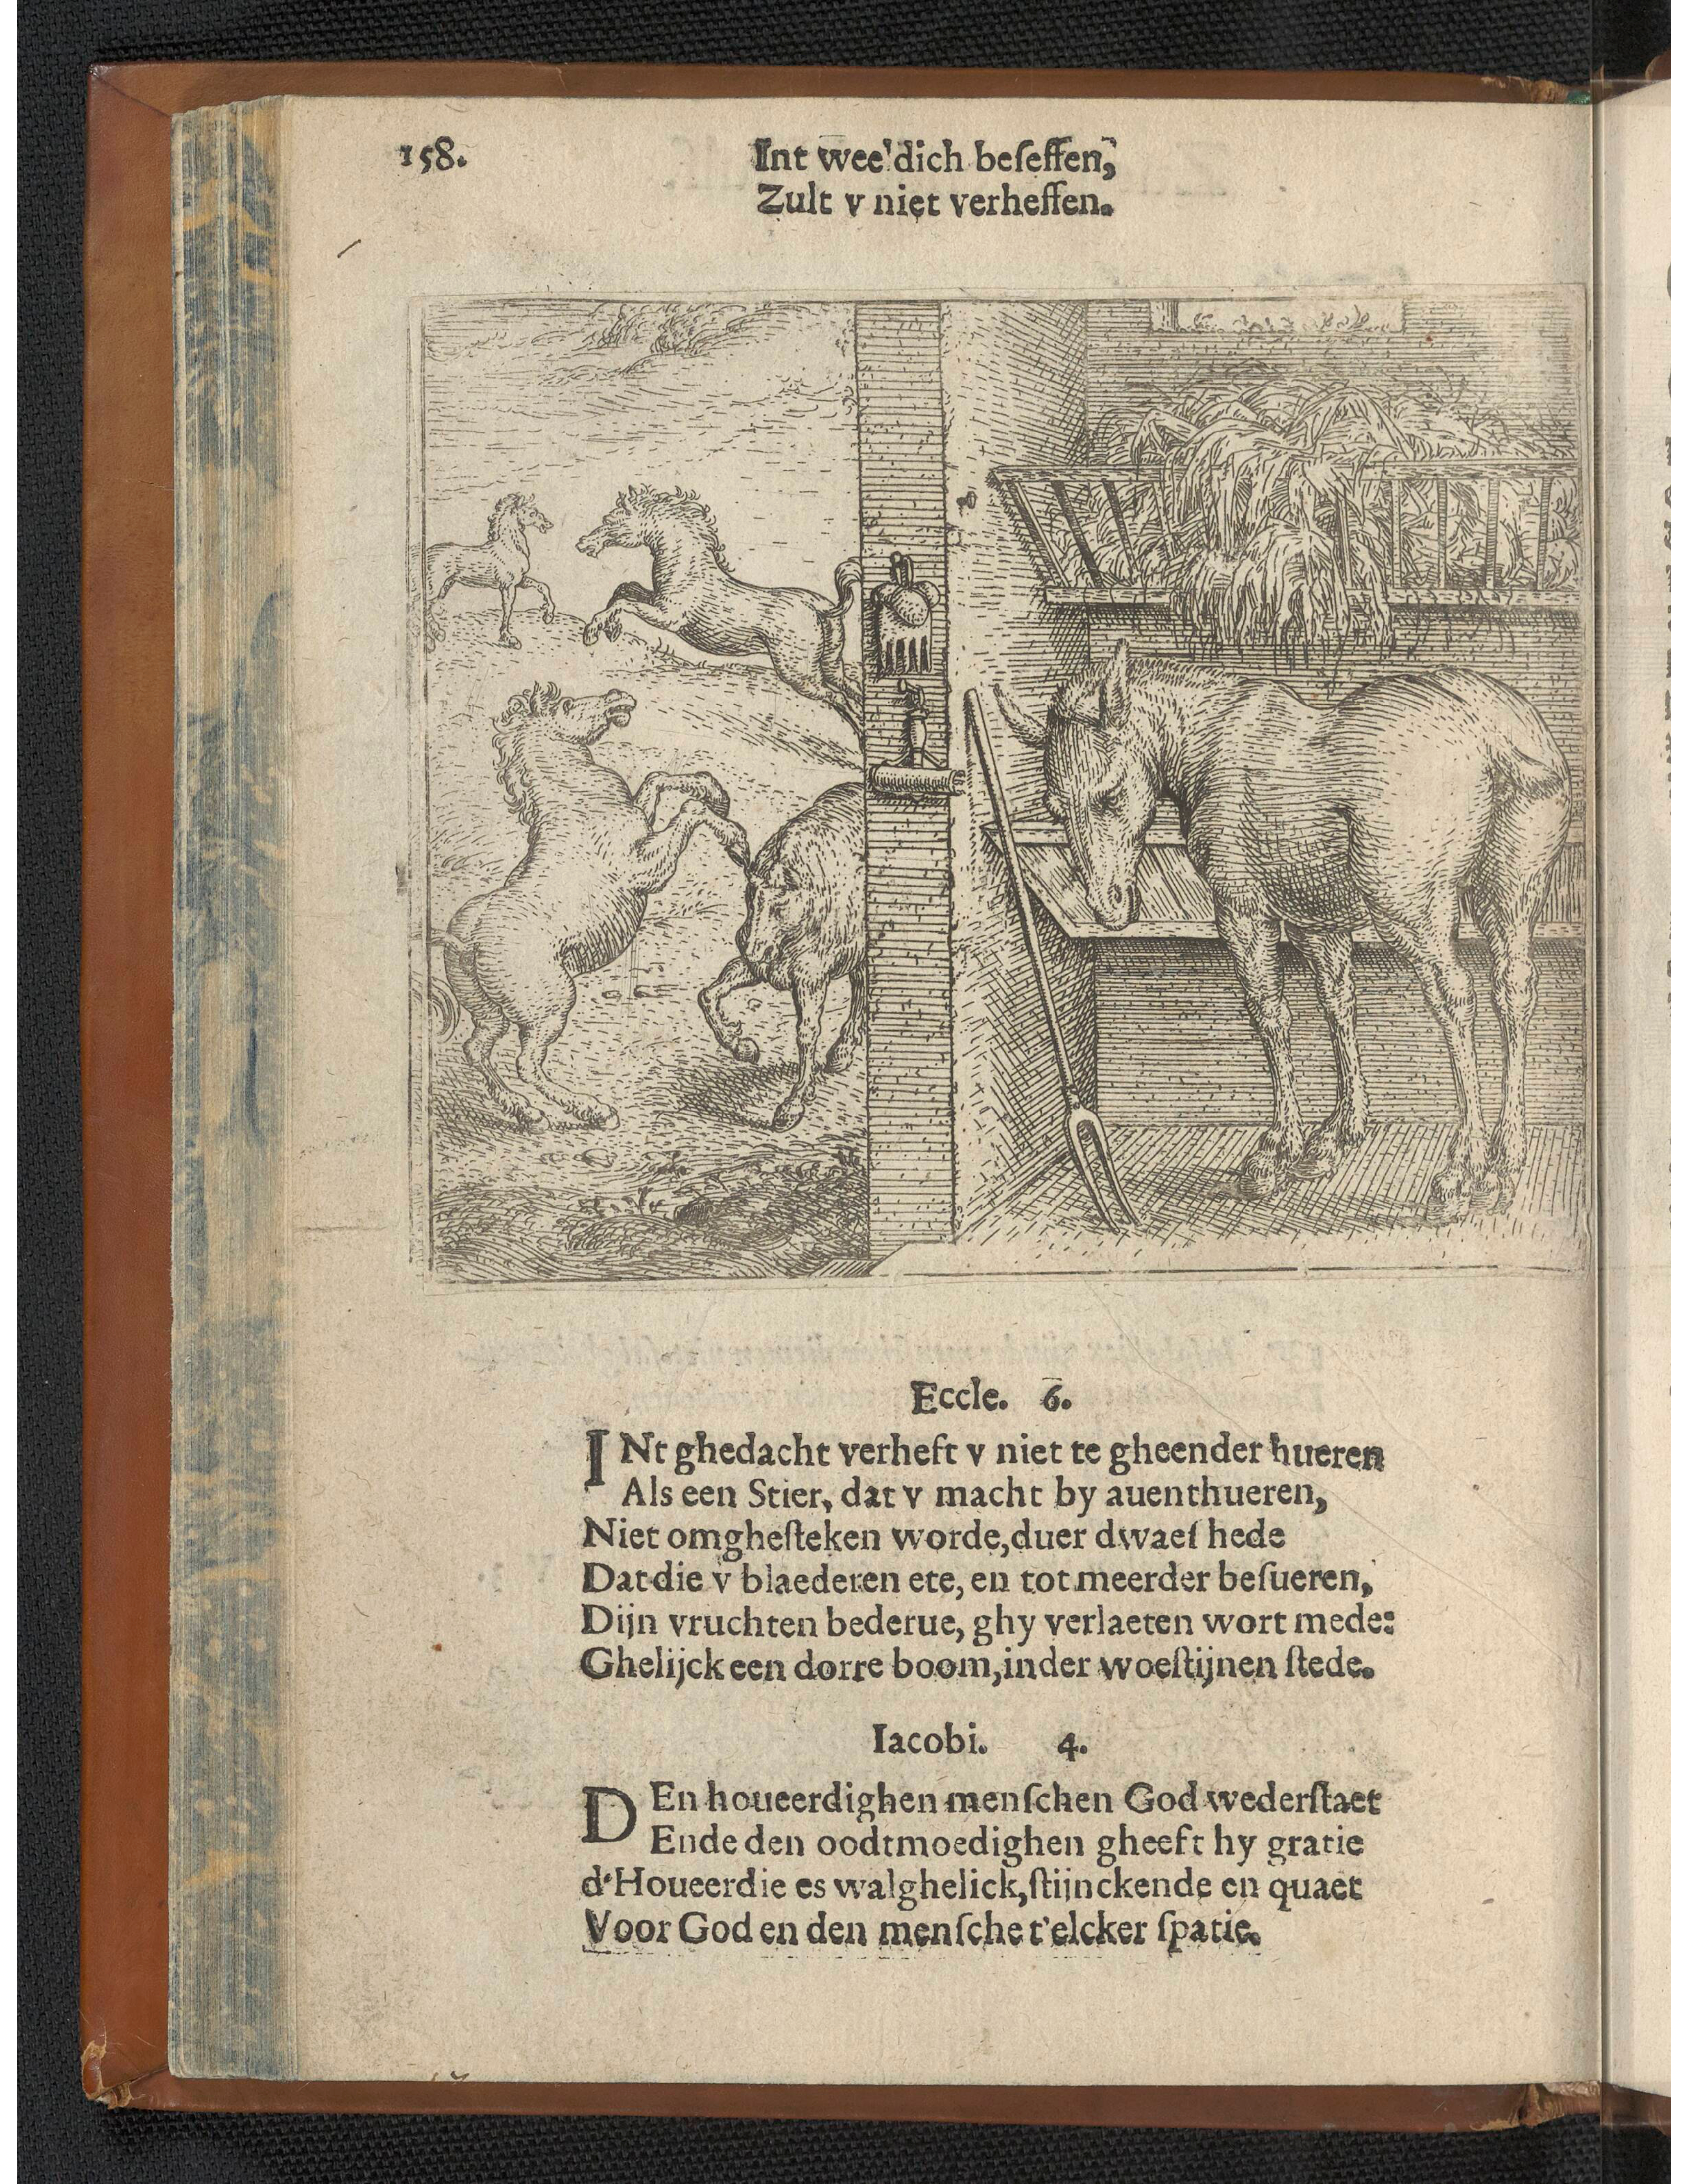 158.
Int wee'dich beſeffen,
Zult v niet verheffen.
Eccle. 6.
INt ghedacht verheft v niet te gheender hueren
Als een Stier, dat v macht by auenthueren,
Niet omgheſteken worde, duer dwaeſ hede
Dat die v blaederen ete, en tot meerder beſueren,
Dijn vruchten bederue, ghy verlaeten wort mede:
Ghelijck een dorre boom, inder woeſtijnen ſtede.
Iacobi. 4.
DEn houeerdighen menſchen God wederſtaet
Ende den oodtmoedighen gheeft hy gratie
d'Houeerdie es walghelick, ſtijnckende en quaet
Voor God en den menſche t'elcker ſpatie.